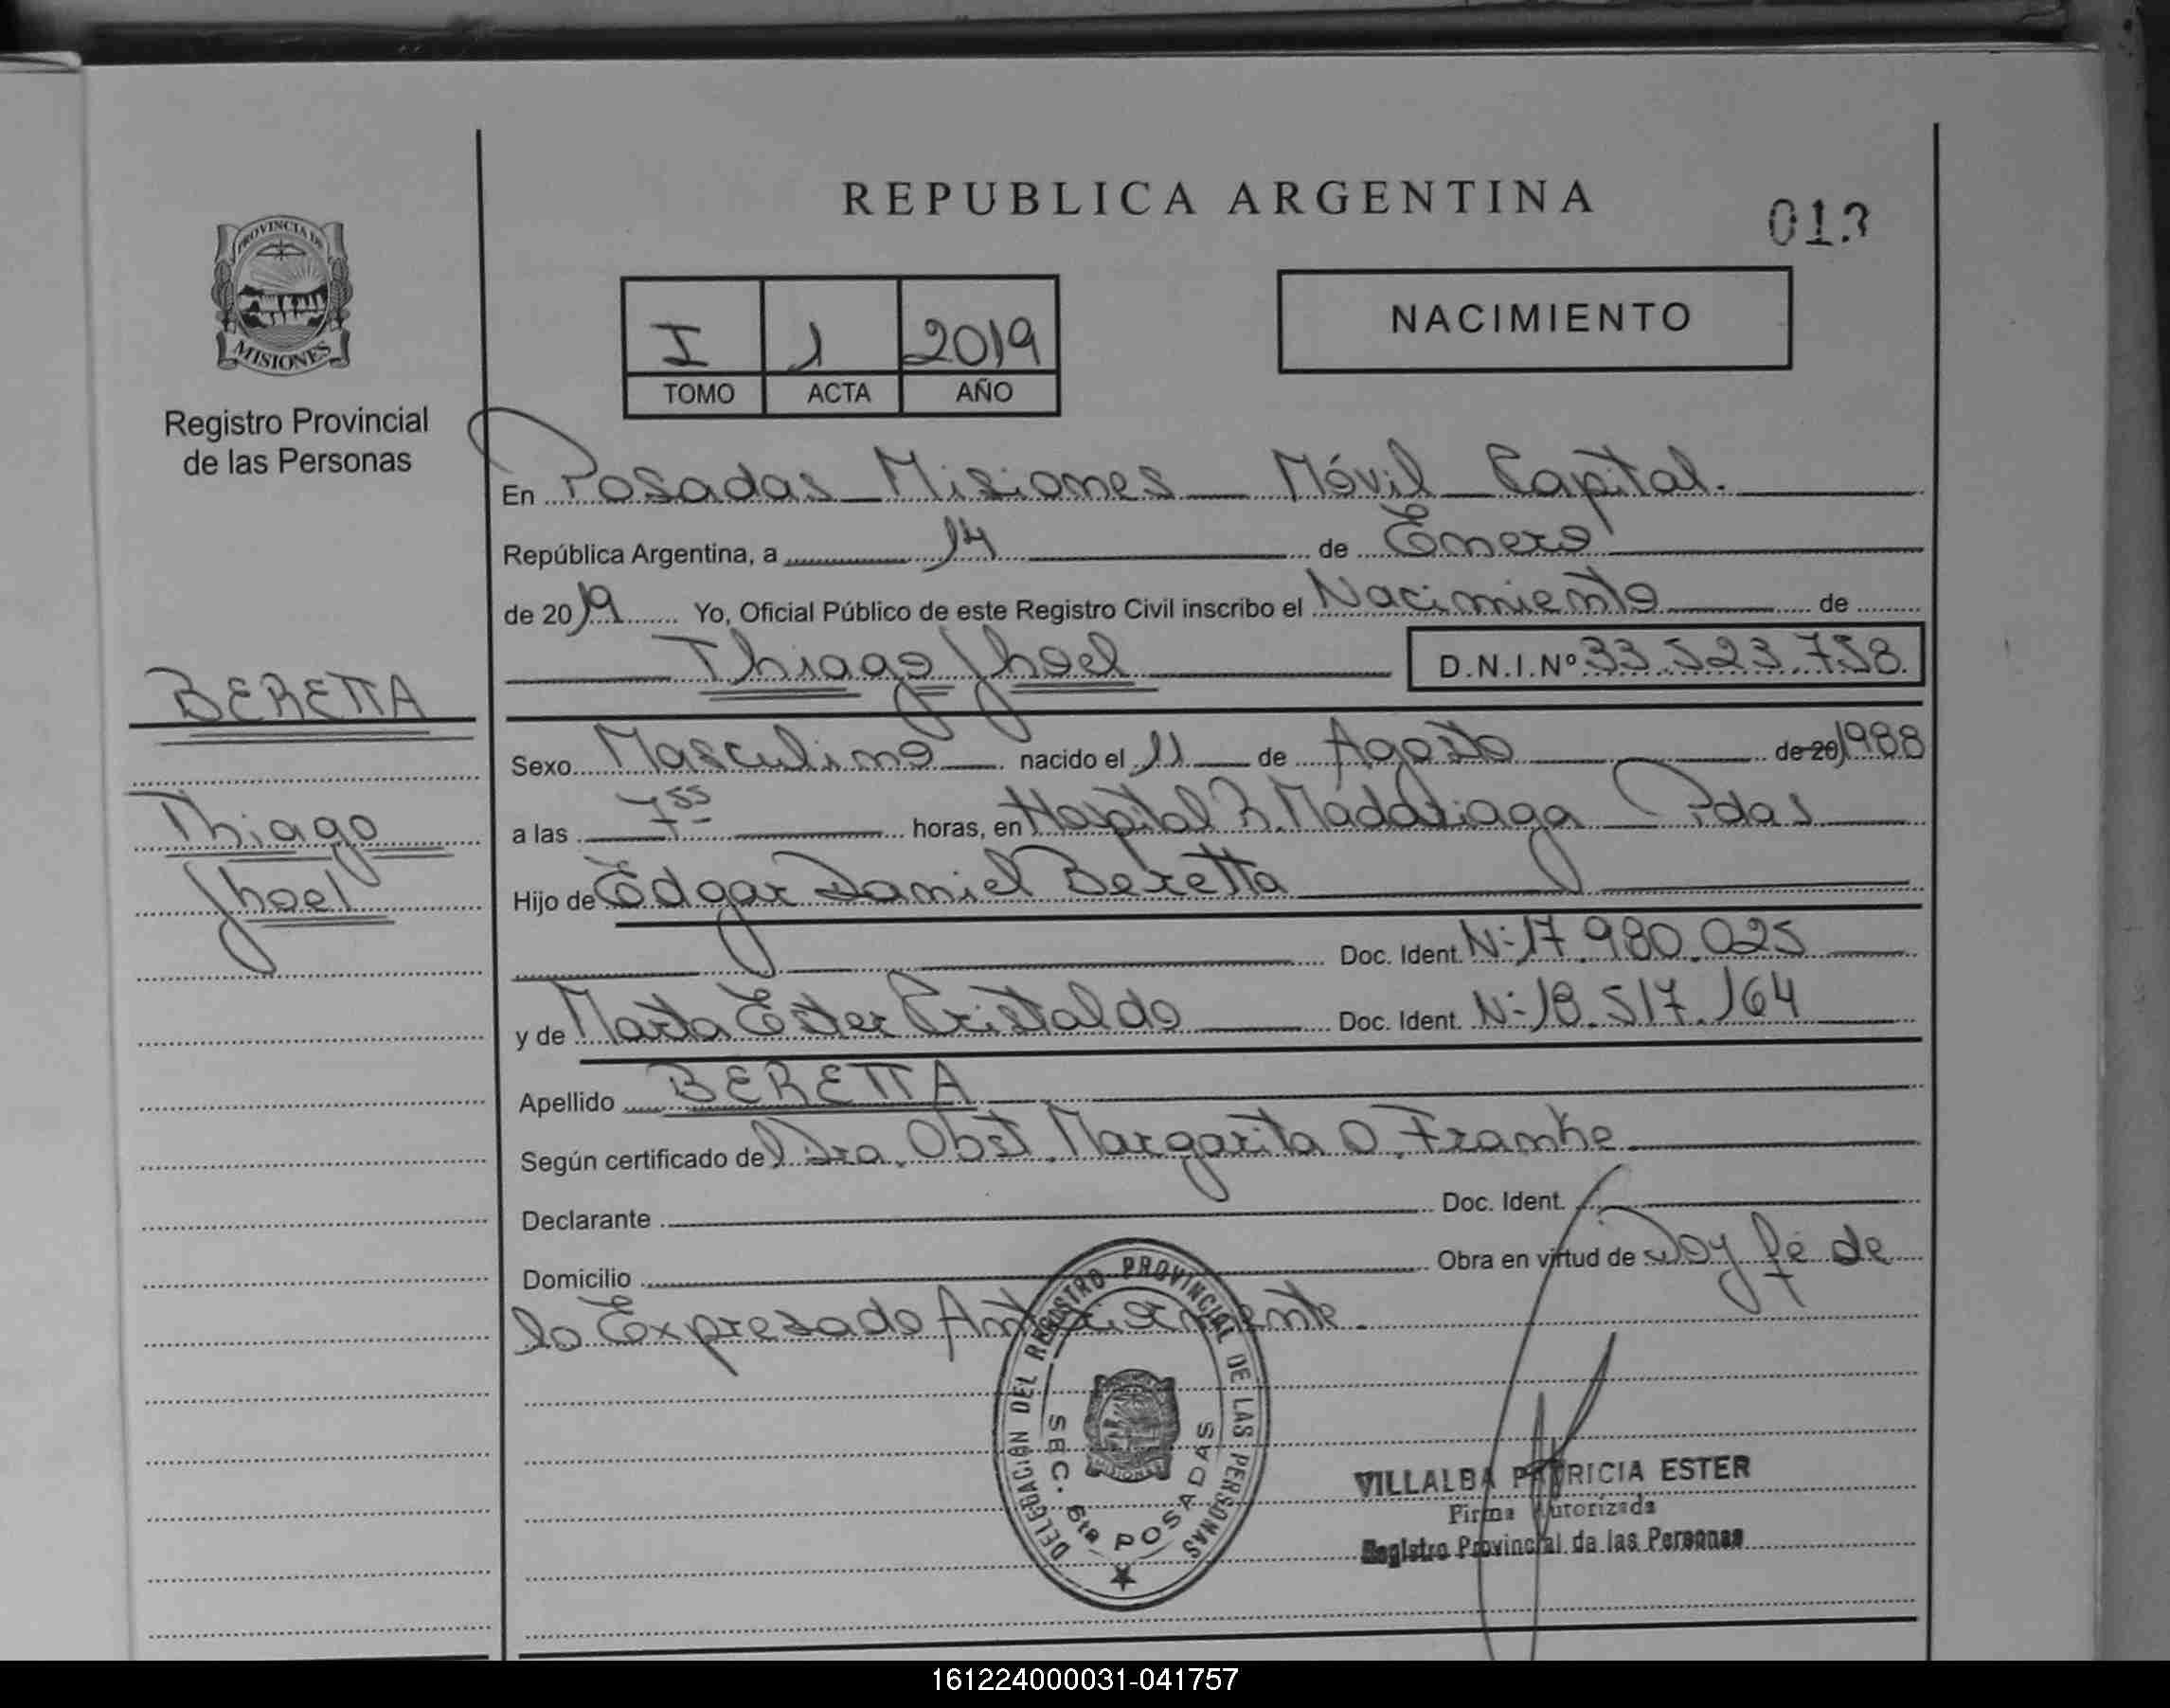 REPUBLICA ARGENTINA
013
PROVINCIA DE
MISIONES
Registro Provincial
de las Personas
I 1 2019
TOMO ACTA AÑO
NACIMIENTO
En Posadas Misiones Móvil Capital.
República Argentina, a 14 de Enero
de 2019 Yo, Oficial Público de este Registro Civil inscribo el Nacimiento de
Thiago Jhoel D.N.I.Nº 33.523.758.
BERETTA
Thiago
Jhoel
Sexo Masculino nacido el 11 de Agosto de 20 1988
a las 7 55 horas, en Hospital R. Madariaga Pdas
Hijo de Edgar Daniel Beretta
Doc. Ident. Nº 17.980.025
y de Marta Ester Cristaldo Doc. Ident. Nº 18.517.164
Apellido BERETTA
Según certificado del Dra. Obst. Margarita O. Franke
Declarante Doc. Ident.
Domicilio Obra en virtud de Doy fé de
lo Expresado Anteriormente.
DELEGACIÓN DEL REGISTRO PROVINCIAL DE LAS PERSONAS
SEC. 6ta POSADAS
MISIONES
VILLALBA PATRICIA ESTER
Firma Autorizada
Registro Provincial de las Personas
161224000031-041757